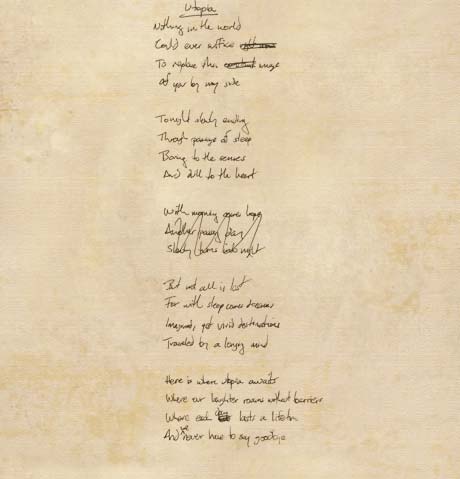 Utopia
Nothing in the world
Could ever suffice right now
To replace this constant image
Of you by my side
Tonight slowly ending
Through passage of sleep
Boring to the senses
And dull to the heart
With morning comes hope
Another passing day
Slowly turns into night
But not all is lost
For with sleep comes dreams
Imagined, yet vivid destinations
Traveled by a longing mind
Here is where utopia awaits
Where our laughter roams without barriers
Where each day lasts a lifetime
And we never have to say goodbye